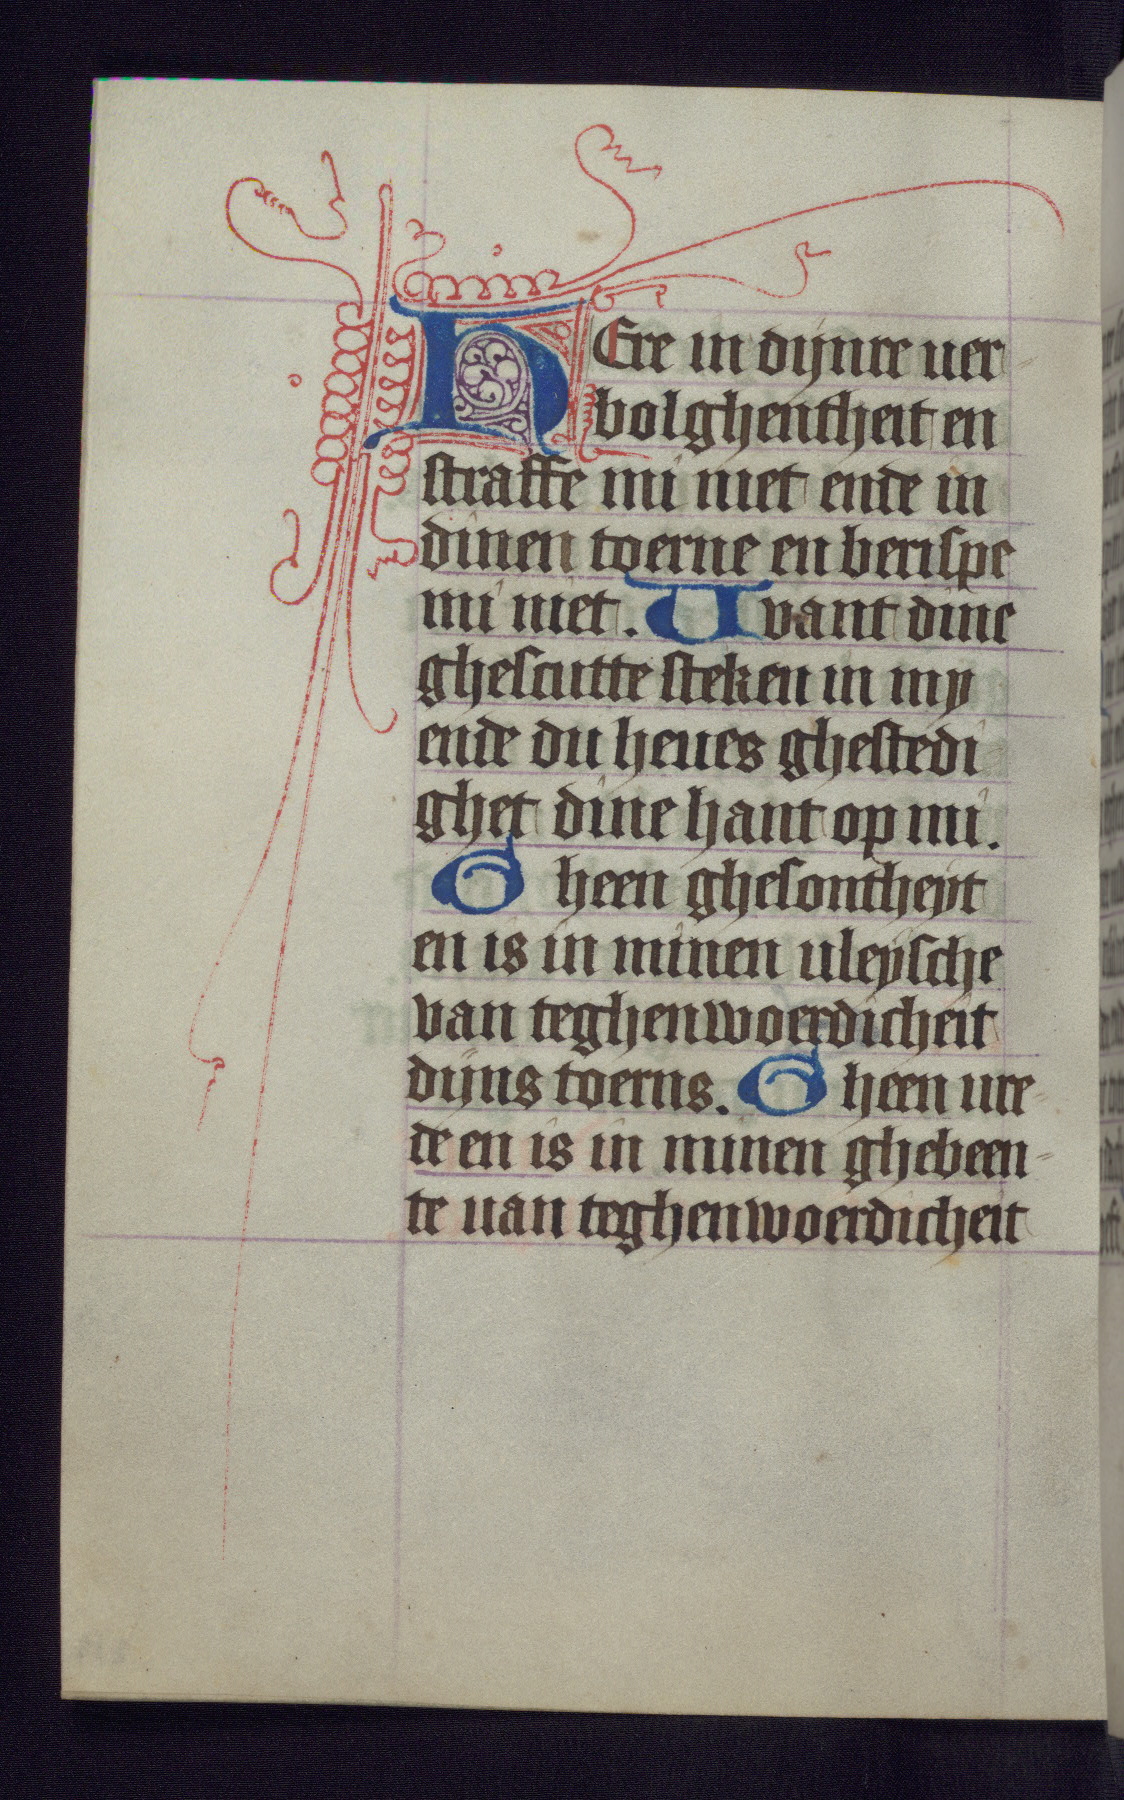 HEre in dijnre uer
bolghentheit en
straffe mi niet ende in
dinen toerne en berispe
mi niet. Uvant dine
ghescutte steken in my
ende du heues ghestedi
ghet dine hant op mi.
Gheen ghesontheyt
en is in minen uleysche
van teghenwoerdicheit
dijns toerns. Gheen ure-
de en is in minen ghebeen-
te uan teghenwoerdicheit